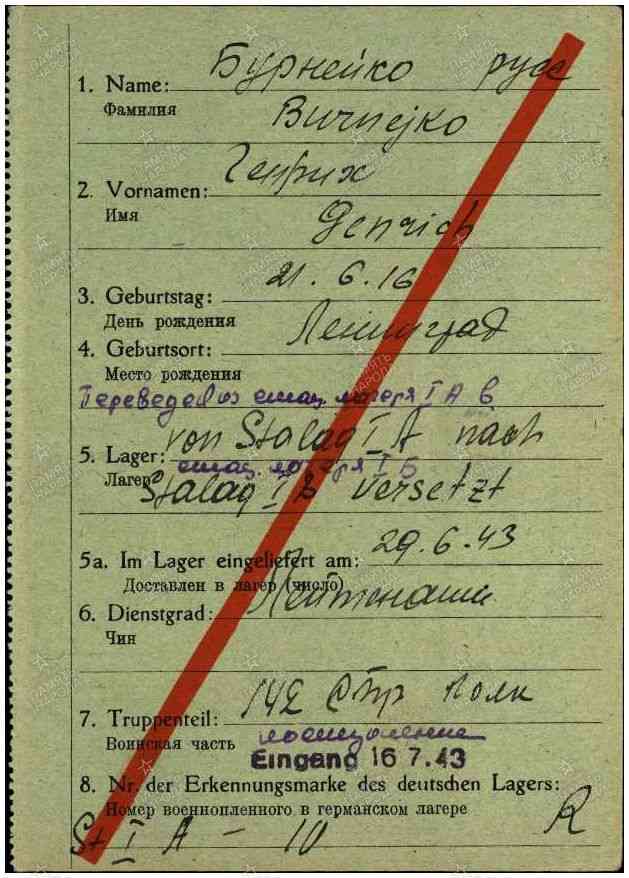 Бурнейко русс
1. Name:
Фамилия
Burnejko
Генрих
2. Vornamen:
Имя
Genrich
21. 6. 16
3. Geburtstag:
День рождения
Ленинград
4. Geburtsort:
Место рождения
Переведен из стац. лагеря I А в
von Stalag I A nach
5. Lager:
стац. лагеря I Б
Лагерь
Stalag I B versetzt
29.6.43
5a. Im Lager eingeliefert am:
Доставлен в лагерь (число)
Лейтенант
6. Dienstgrad:
Чин
142 Стр Полк
7. Truppenteil:
Воинская часть
Eingang 16 7.43
8. Nr. der Erkennungsmarke des deutschen Lagers:
Номер военнопленного в германском лагере
St I A - 10 R